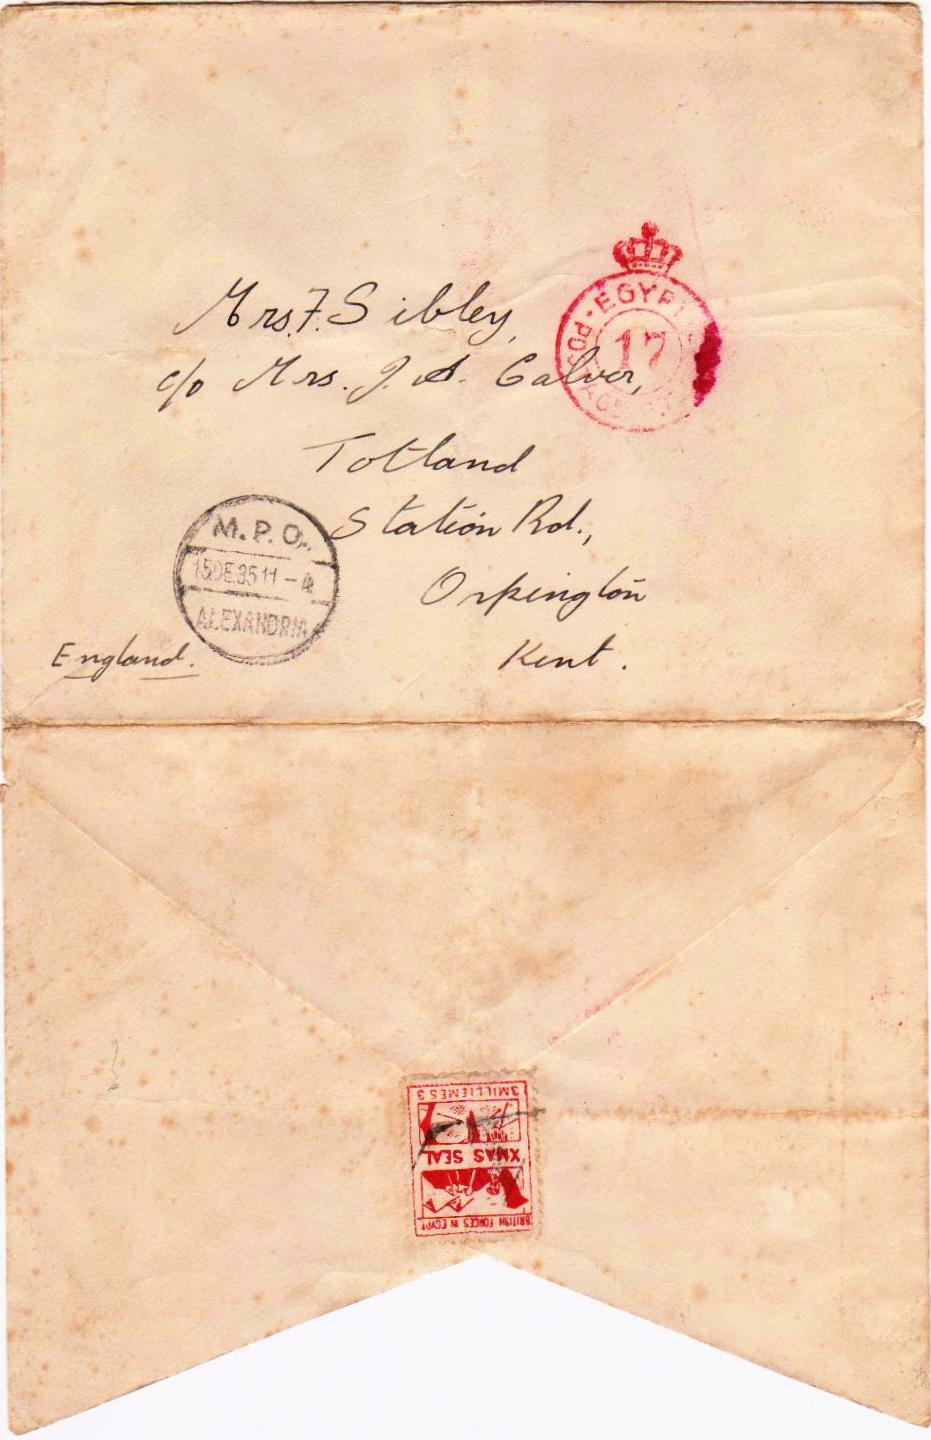 EGYPT
17
Mrs. F. Sibley,
c/o Mrs. J. A. Calver,
Totland
Station Rd.,
Orpington
Kent.
England.
M.P.O.
15 DE.35 11-4
ALEXANDRIA
3 MILLIEMES 3
XMAS SEAL
BRITISH FORCES IN EGYPT